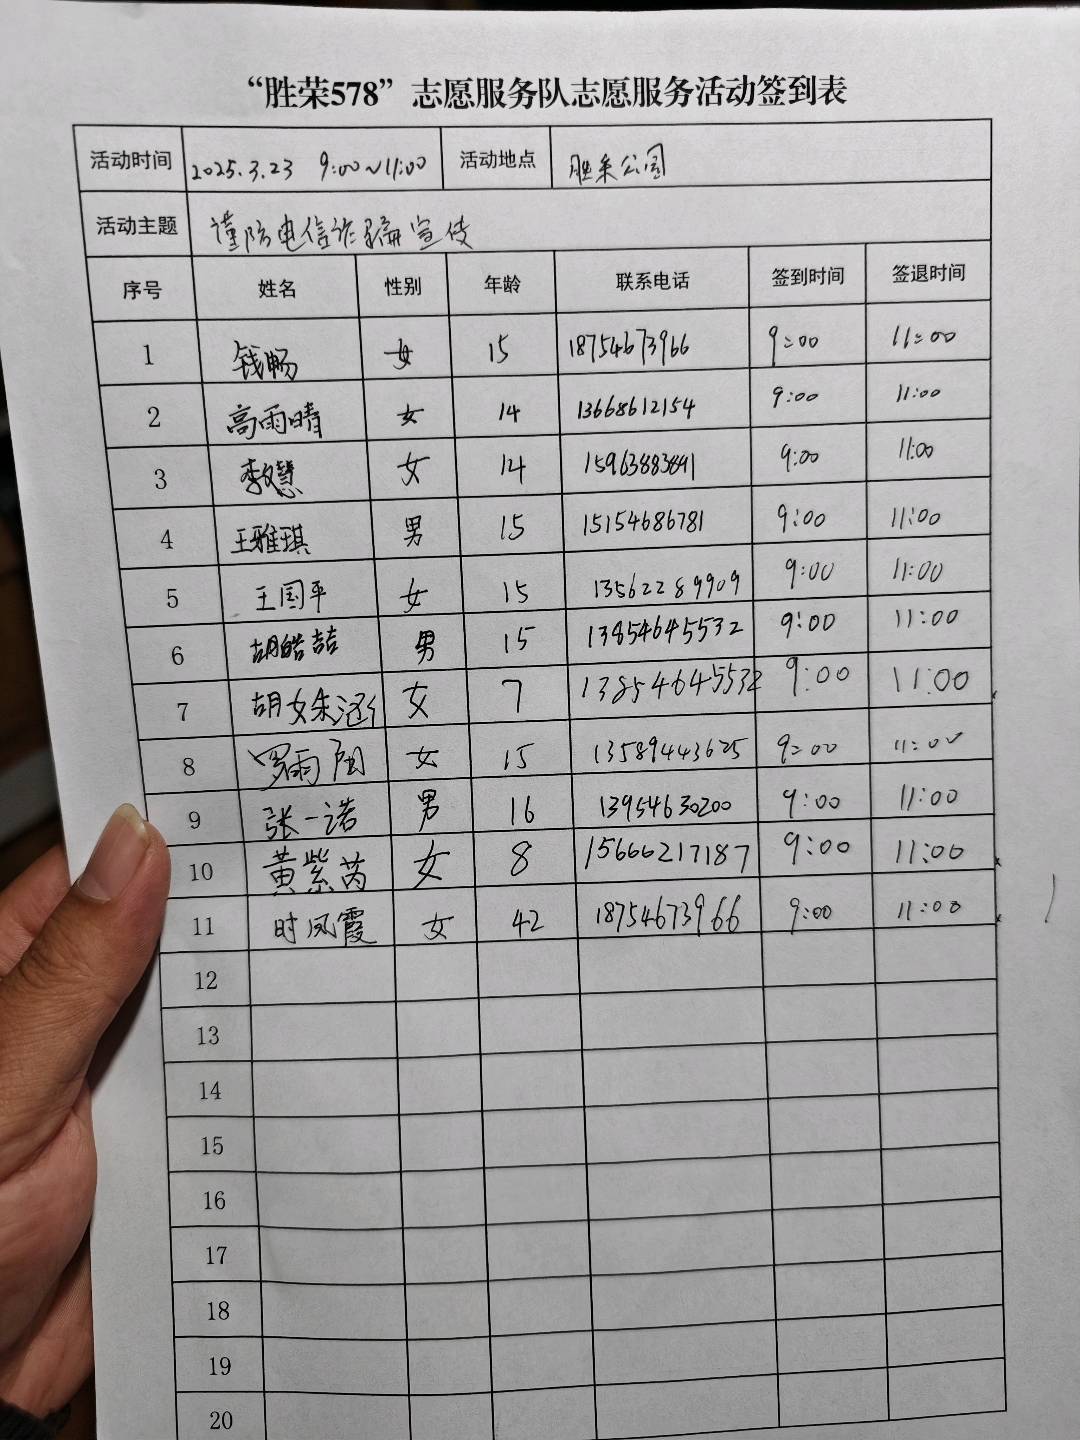 “胜荣578”志愿服务队志愿服务活动签到表
活动时间 2025.3.23 9:00~11:00 活动地点 胜采公园
活动主题 谨防电信诈骗宣传
序号 姓名 性别 年龄 联系电话 签到时间 签退时间
1 钱畅 女 15 18754673966 9:00 11:00
2 高雨晴 女 14 13668612154 9:00 11:00
3 李慧 女 14 15963883891 9:00 11:00
4 王雅琪 男 15 15154686781 9:00 11:00
5 王国平 女 15 13562289909 9:00 11:00
6 胡皓喆 男 15 13854645532 9:00 11:00
7 胡姝涵 女 7 13854645532 9:00 11:00
8 罗雨 女 15 13589443625 9:00 11:00
9 张一诺 男 16 13954630200 9:00 11:00
10 黄紫芮 女 8 15666217187 9:00 11:00
11 时凤霞 女 42 18754673966 9:00 11:00
12
13
14
15
16
17
18
19
20